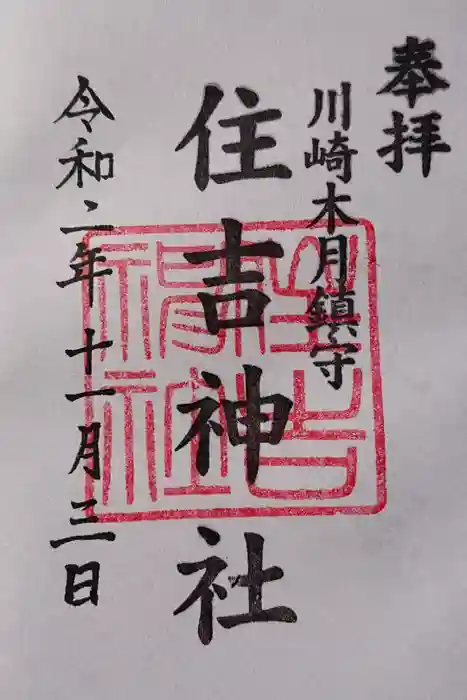 奉拝
川崎木月鎮守
住吉神社
令和二年十一月三日